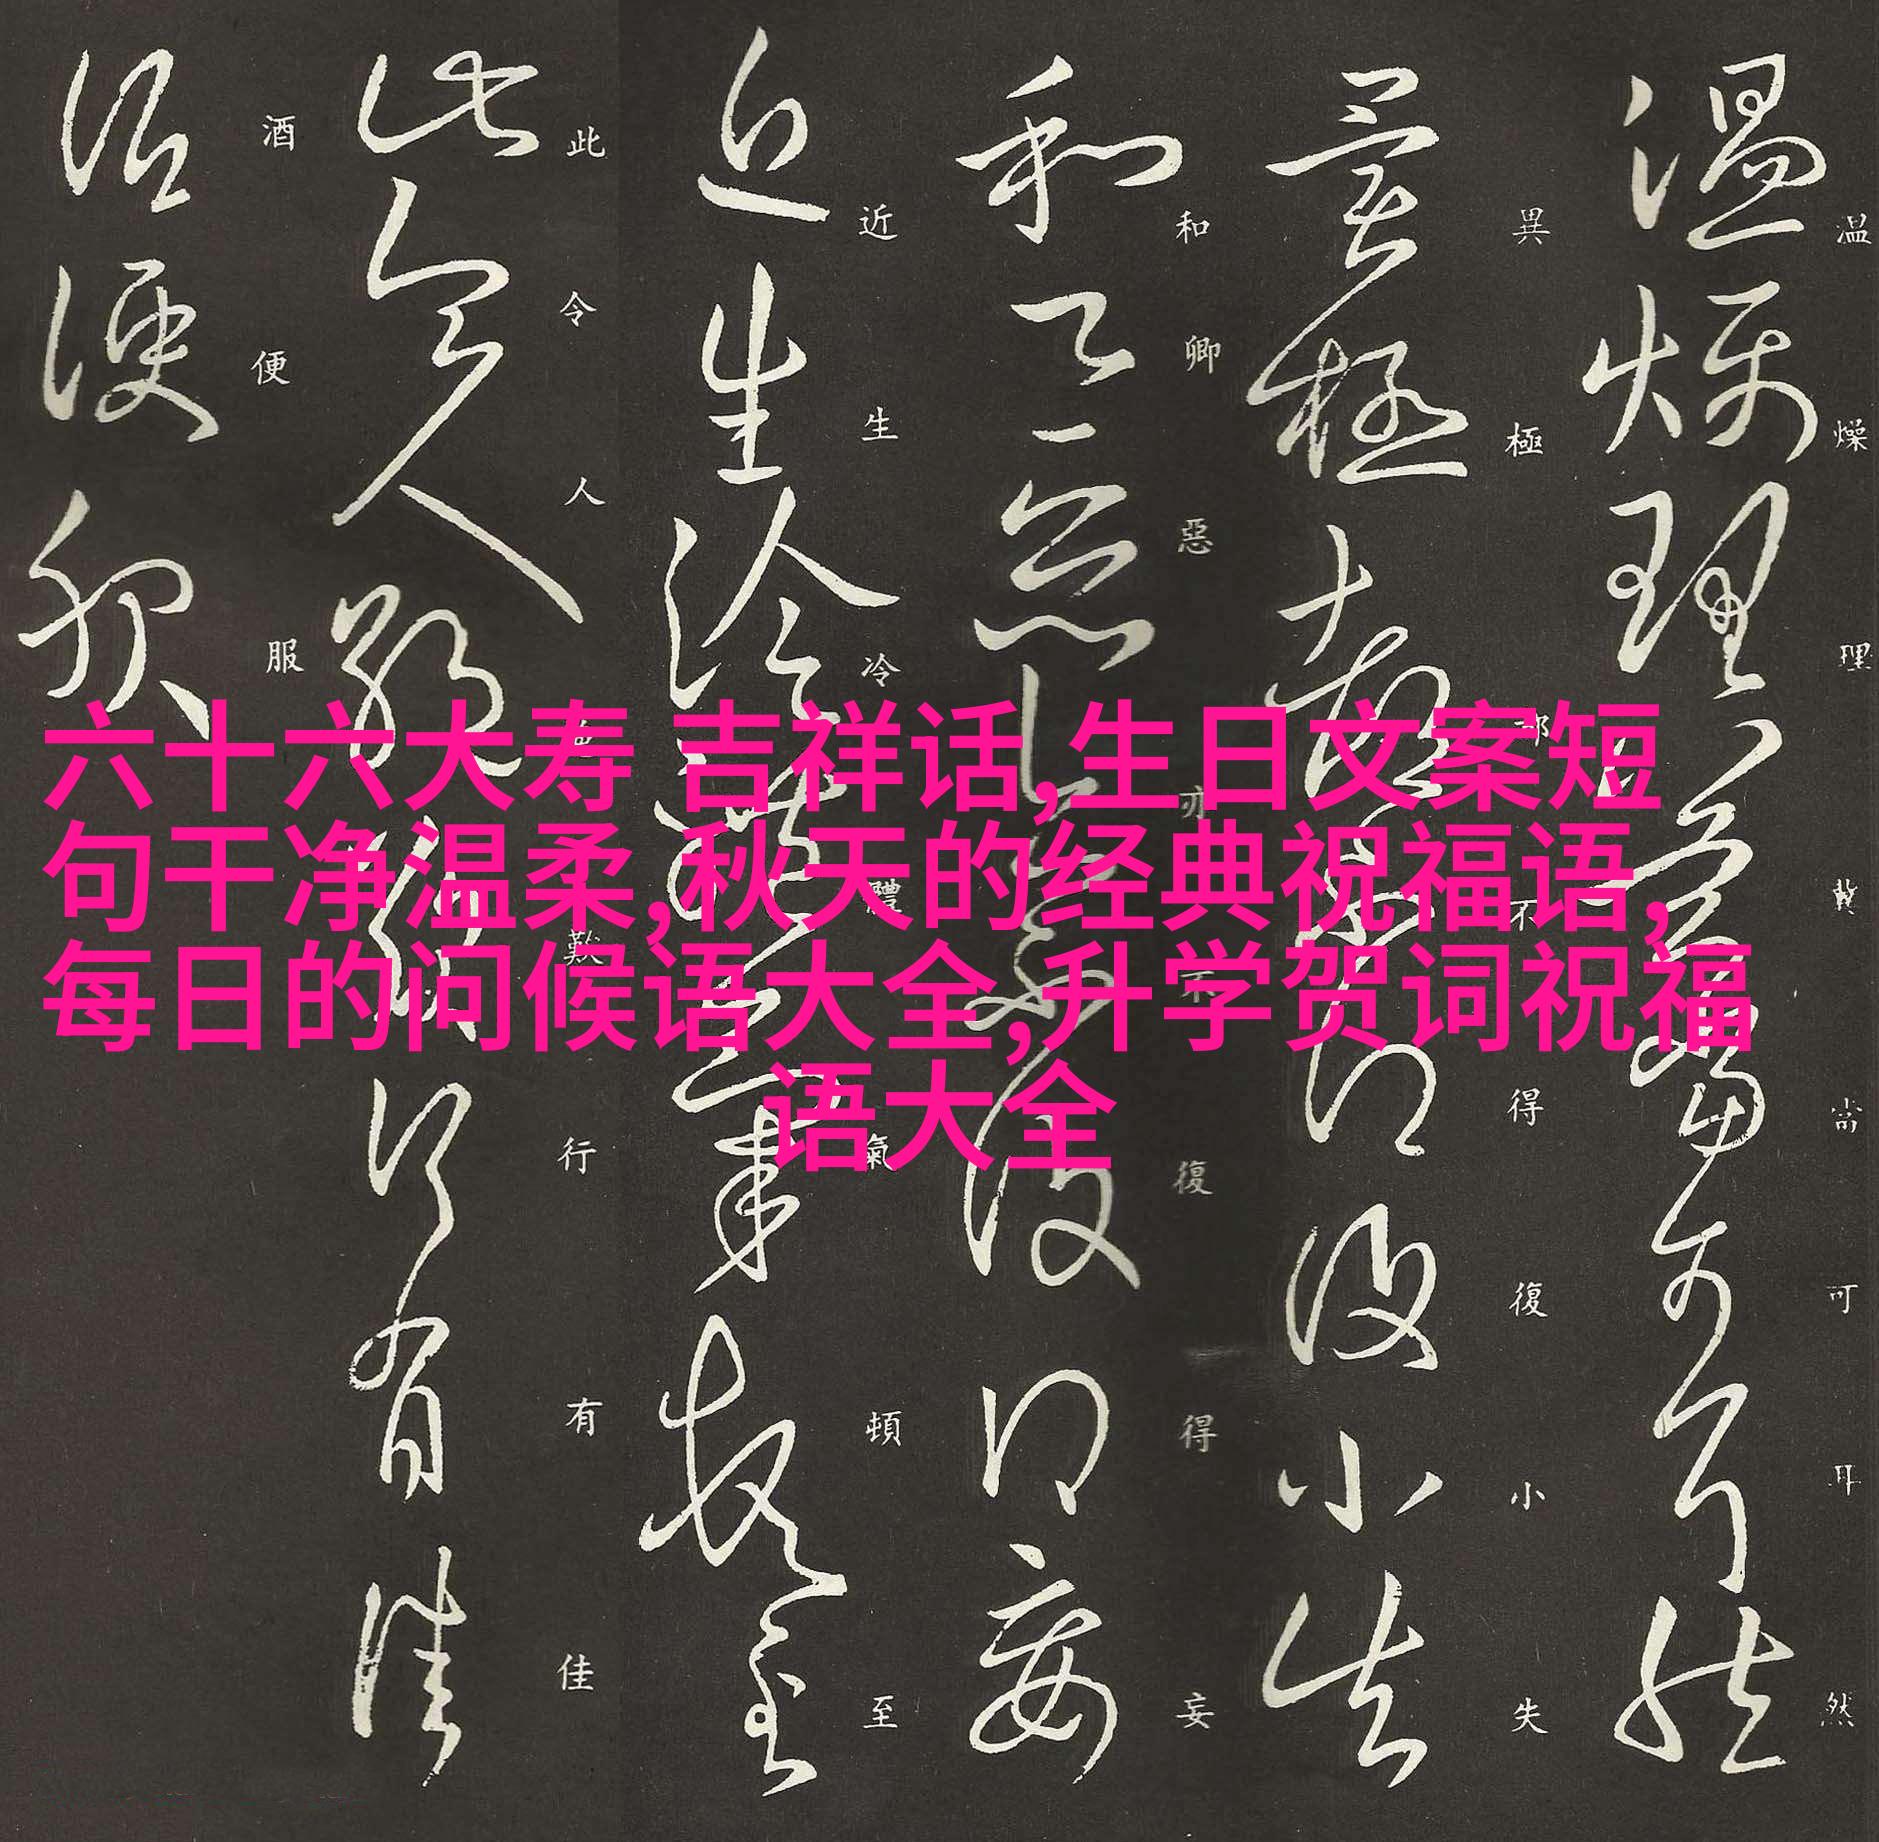 六十六大寿 吉祥话,生日文案短
句干净温柔,秋天的经典祝福语,
每日的问候语大全,升学贺词祝福
语大全
温燥理冀當可耳然
異極都不得復小失
和卿惡亦不復得妄
近生冷體氣頓至
此令人歎行有佳
酒便服